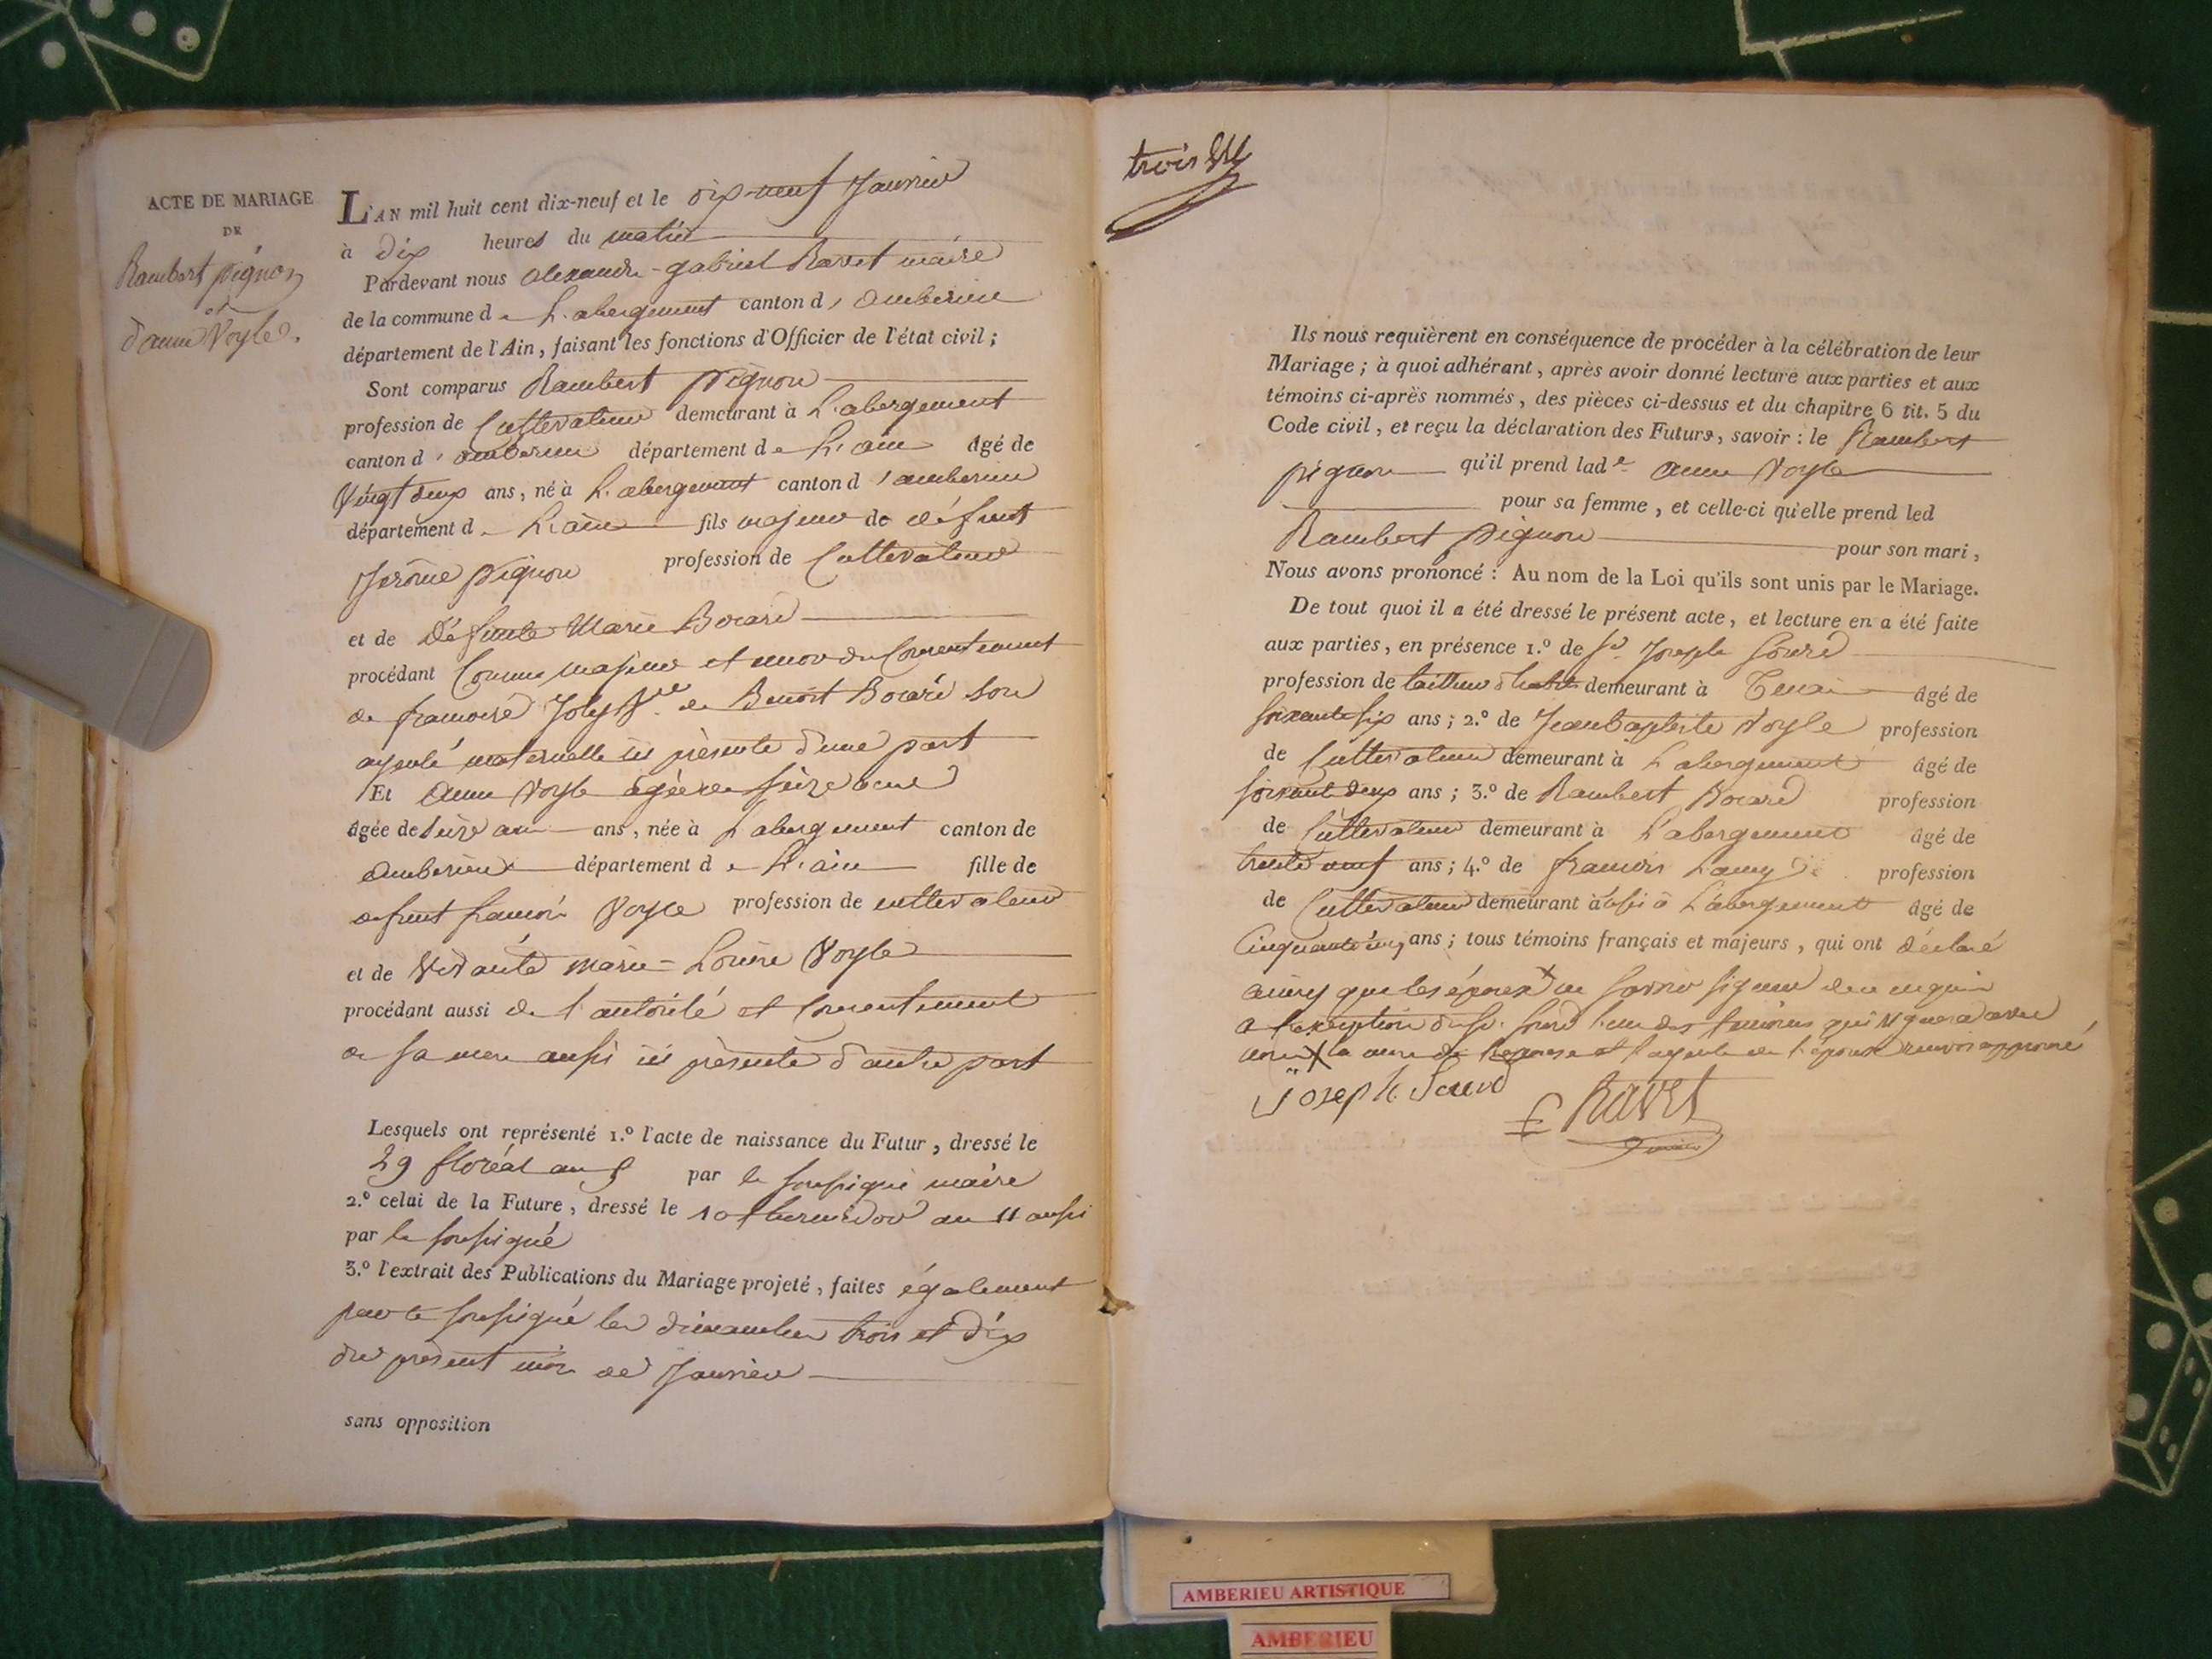 ACTE DE MARIAGE
DE
Rambert pignon
et
d'anne Voyle.
L'AN mil huit cent dix-neuf et le dix-neuf Janvier
à dix heures du matin
Pardevant nous alexandre-gabriel Ravet maire
de la commune de L'abergement canton d'amberieu
département de l'Ain, faisant les fonctions d'Officier de l'état civil;
Sont comparus Rambert pignon
profession de Cultivateur demeurant à L'abergement
canton d'amberieu département de L'ain âgé de
Vingt deux ans, né à L'abergement canton d'amberieu
département de L'ain fils majeur de défunt
Jérôme pignon profession de Cultivateur
et de Défunte Marie Bocard
procédant Comme majeur et du Consentement
de Joly Vve de Benoit Bocard son
ayeule maternelle ici présente d'une part
Et Anne Voyle âgée de seize ans
âgée de seize ans ans, née à L'abergement canton de
Amberieu département de L'ain fille de
defunt Voyle profession de cultivateur
et de Vivante marie-Louise Voyle
procédant aussi de l'autorité et Consentement
de sa mere aussi ici présente d'autre part
Lesquels ont représenté 1.º l'acte de naissance du Futur, dressé le
29 floréal an par le soussigné maire
2.º celui de la Future, dressé le 10 thermidor an 11 aussi
par le soussigné
3.º l'extrait des Publications du Mariage projeté, faites également
par le soussigné les dimanches trois et dix
du présent mois de Janvier
sans opposition
trois
Ils nous requièrent en conséquence de procéder à la célébration de leur
Mariage; à quoi adhérant, après avoir donné lecture aux parties et aux
témoins ci-après nommés, des pièces ci-dessus et du chapitre 6 tit. 5 du
Code civil, et reçu la déclaration des Futurs, savoir: le Rambert
pignon qu'il prend lade anne Voyle
pour sa femme, et celle-ci qu'elle prend led
Rambert pignon pour son mari,
Nous avons prononcé: Au nom de la Loi qu'ils sont unis par le Mariage.
De tout quoi il a été dressé le présent acte, et lecture en a été faite
aux parties, en présence 1.º de Sr Joseph
profession de tailleur d'habits demeurant à Tenai âgé de
soixante six ans; 2.º de Jean baptiste Voyle profession
de Cultivateur demeurant à L'abergement âgé de
soixante deux ans; 3.º de Rambert Bocard profession
de Cultivateur demeurant à L'abergement âgé de
trente neuf ans; 4.º de francois Lamy profession
de Cultivateur demeurant à aussi à L'abergement âgé de
Cinquante ans; tous témoins français et majeurs, qui ont déclaré
ainsy que les époux ne savoir signer de ce enquis
a l'exception du Sr. l'un des témoins qui signera avec
nous X la mere de l'épouse et l'ayeule de l'époux renvoi approuvé
Joseph
Ravet
maire
AMBERIEU ARTISTIQUE
AMBERIEU